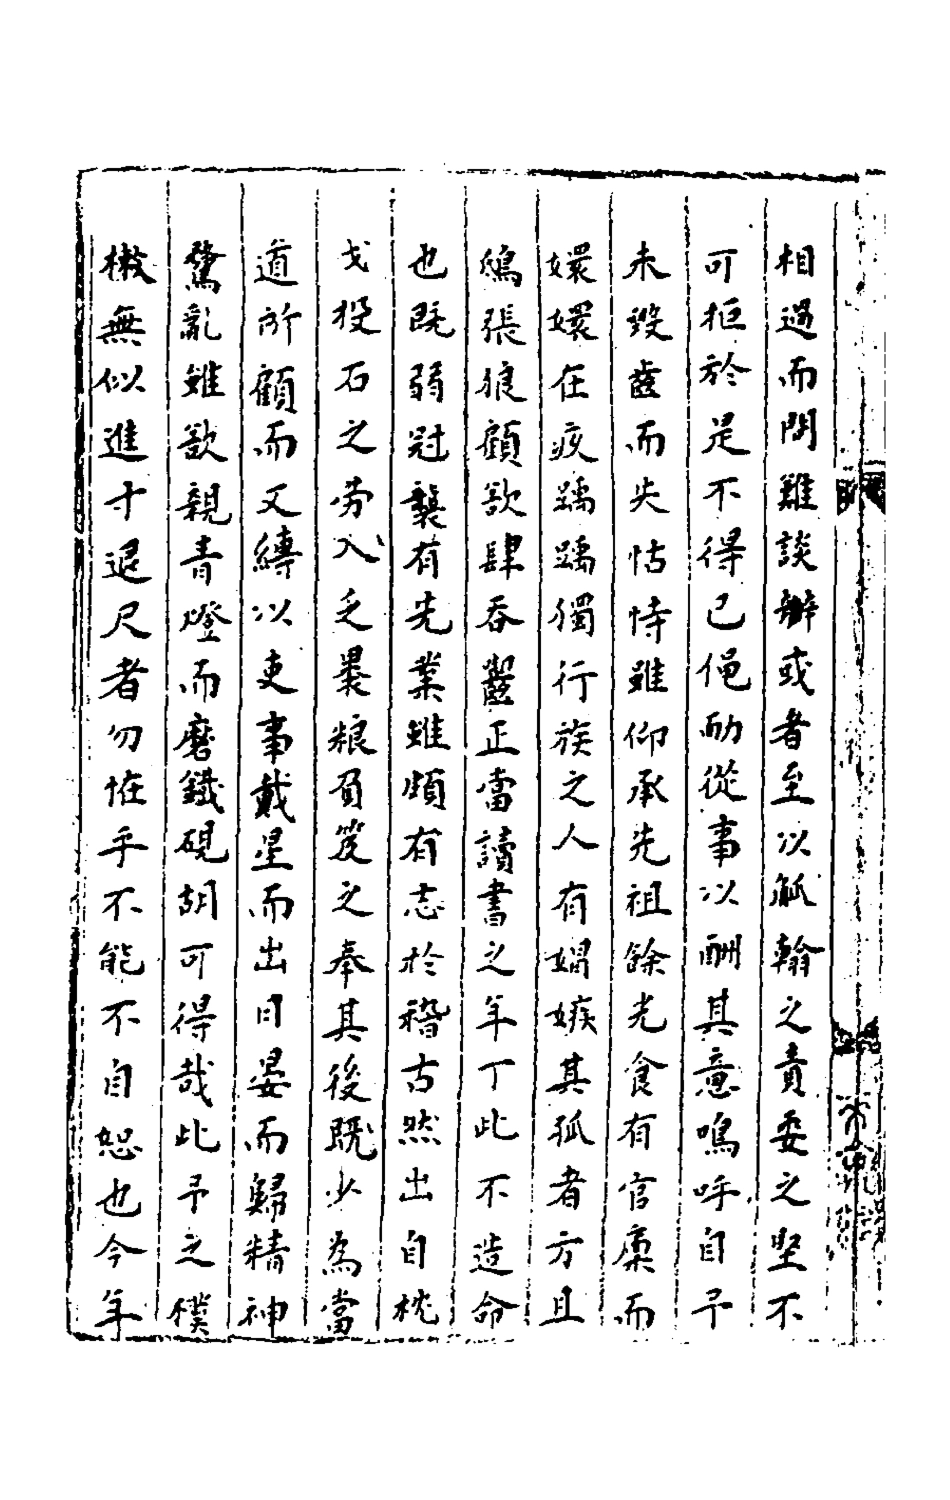 相過而問難談辦或者至以觚翰之責委之堅不
可拒於是不得已俛勔從事以酬其意鳴呼自予
未毀齒而失怙恃雖仰承先祖餘光食有官廩而
嬛嬛在疚踽踽獨行族之人有媢嫉其孤者方且
鴟張狼顧欲肆吞齧正當讀書之年丁此不造命
也既弱冠襲有先業雖頗有志於稽古然出自枕
戈投石之勞入乏裹粮負笈之奉其後既少為當
道所顧而又縛以吏事戴星而出日晏而歸精神
騖亂雖欲親青燈而磨鐵硯胡可得哉此予之樸
樕無似進寸退尺者勿恠乎不能不自恕也今年